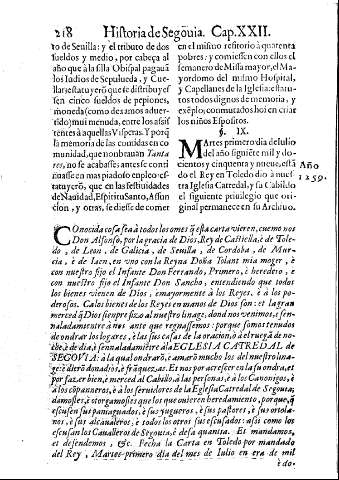 218 Historia de Segouia. Cap. XXII.
to de Seuilla: y el tributo de dos
sueldos y medio, por cabeça al
año que à la silla Obispal pagauã
los Iudios de Sepulueda, y Cue-
llar: estatuyerõ que se distribuyes-
sen cinco sueldos de pepiones,
moneda (como dexamos aduer-
tido) mui menuda, entre los assis-
tentes à aquellas Visperas. Y porq̃
la memoria de las comidas en co-
munidad, que nonbrauan Tanta
rios, no se acabasse: antes se conti
nuasse en mas piadoso enpleo: es-
tatuyerõ, que en las festiuidades
de Nauidad, Espiritu Santo, Assun
cion, y otras, se diesse de comer
en el mismo refitorio à quarenta
pobres: y comiessen con ellos el
semanero de Missa mayor, el Ma-
yordomo del mismo Hospital,
y Capellanes de la Iglesia: estatu-
tos todos dignos de memoria, y
exenplo; conmutados hoi en criar
los niños Espositos.
§. IX.
Martes primero dia de Iulio
del año siguiẽte mil y do-
cientos y cinquenta y nueue, està
do el Rey en Toledo diò à nues
tra Iglesia Catredal, y su Cabildo
el siguiente priuilegio que ori-
ginal permanece en su Archiuo.
Año
1259.
Conocida cosa sea à todos los omes q̃ esta carta vieren, cuemo nos
Don Alfonso, por la gracia de Dios, Rey de Castiella, è de Tole-
do, de Leon, de Galicia, de Seuilla, de Cordoba, de Mur-
cia, è de Iaen, en vno con la Reyna Doña Yolant mia moger, è
con nuestro fijo el Infante Don Ferrando, Primero, è heredero, è
con nuestro fijo el Infante Don Sancho, entendiendo que todos
los bienes vienen de Dios, è mayormente à los Reyes, è à los po-
derosos. Ca los bienes de los Reyes en mano de Dios son: è la gran
merced q̃ Dios siempre fizo al nuestro linage, dond nos venimos, è se-
naladamientre à nos ante que regnassemos: porque somos tenudos
de ondrar los logares, è las sus casas de la oracion, à õ el ruegã de no-
che, è de dia, è señaladamiẽtre à la EGLESIA CATREDAL de
SEGOVIA: à la qual ondrarõ, è amarõ mucho los del nuestro lina-
ge: è dierõ donadios, è frãquezas. Et nos por acrescer en la su ondra, et
por fazer bien, è merced al Cabildo, à las personas, è à los Canonigos, è
à los cõpanneros, è à los seruidores de la Eglesia Catredal de Segouia;
damosles, è otorgamosles que los que ouieren heredamiento, porque
escusen sus paniaguados, è sus yugueros, è sus pastores, è sus ortola-
nos, è sus alcaueros, è todos los otros sus escusados: assi como los
escusan los Caualleros de Segouia, è desa quantia. Et mandamos,
et defendemos, &c. Fecha la Carta en Toledo por mandado
del Rey, Martes primero dia del mes de Iulio en era de mil
è do-